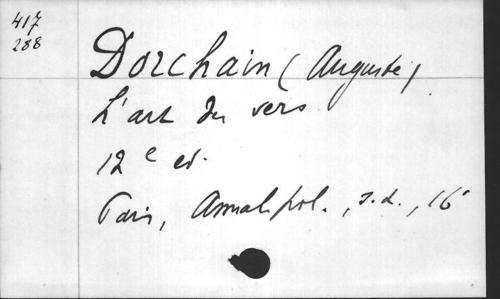 417
288
Dorchain (Auguste)
L'art du vers
12e ed.
Paris, Annal. pol., s.d., 16°